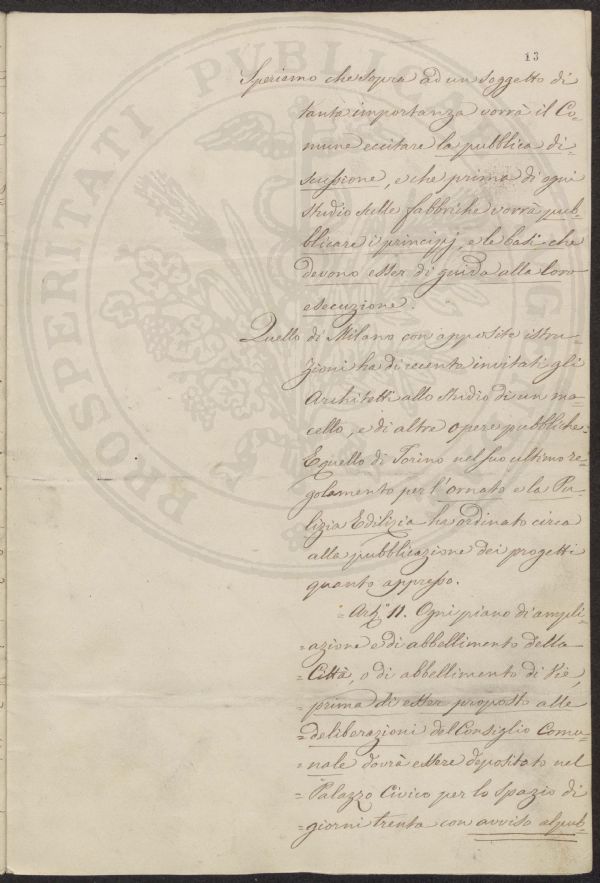 13
Speriamo che sopra ad un soggetto di
tanta importanza vorrà il Co-
mune eccitare la pubblica di-
scussione, e che prima di ogni
studio sulle fabbriche vorrà pub-
blicare i principj, e le basi che
devono esser di guida alla loro
esecuzione.
Quello di Milano con apposite istru-
zioni ha di recente invitati gli
Architetti allo studio di un ma-
cello, e di altre opere pubbliche:
E quello di Torino nel suo ultimo re-
golamento per l'ornato e la Pu-
lizia Edilizia ha ordinato circa
alla pubblicazione dei progetti
quanto appresso.
= Art.° 11. Ogni piano di ampli-
= azione e di abbellimento della
= Città, o di abbellimento di Vie,
= prima di esser proposto alle
= deliberazioni del Consiglio Comu-
= nale dovrà essere depositato nel
= Palazzo Civico per lo spazio di
= giorni trenta con avviso al pub-
PROSPERITATI PUBLICAE